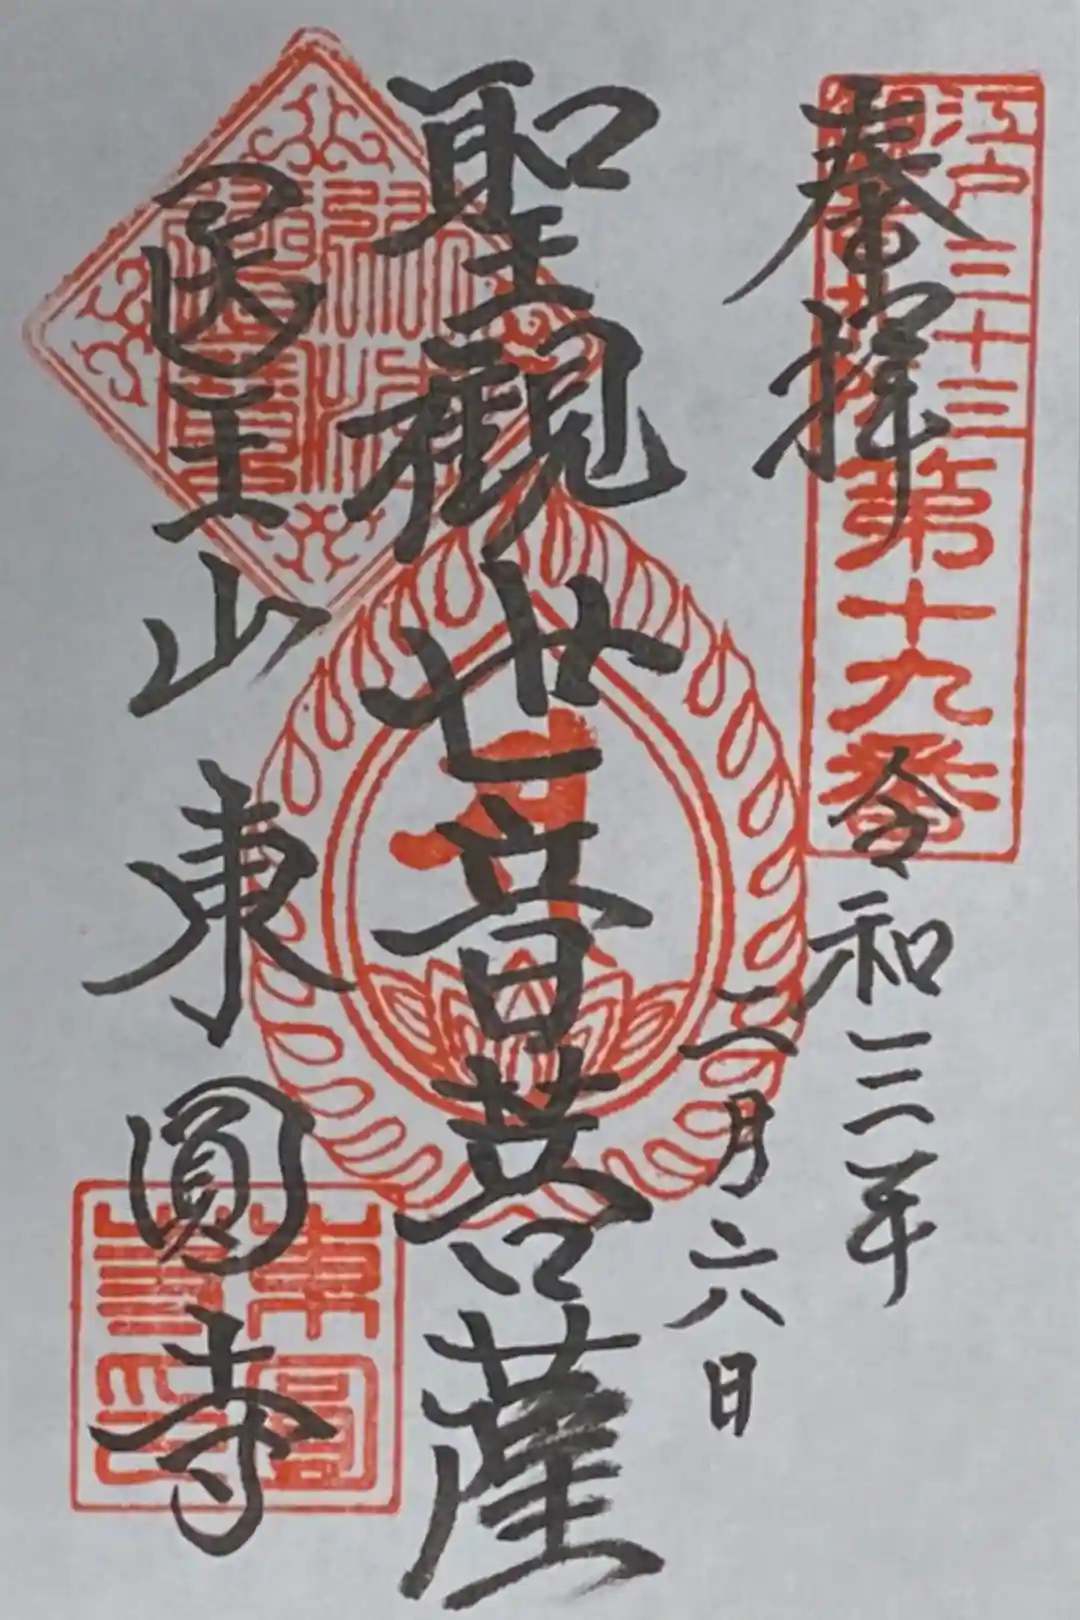 江戸三十三
第十九番
奉拝
令和三年
二月六日
聖観世音菩薩
医王山 東圓寺
佛法
僧寶
東圓
寺印